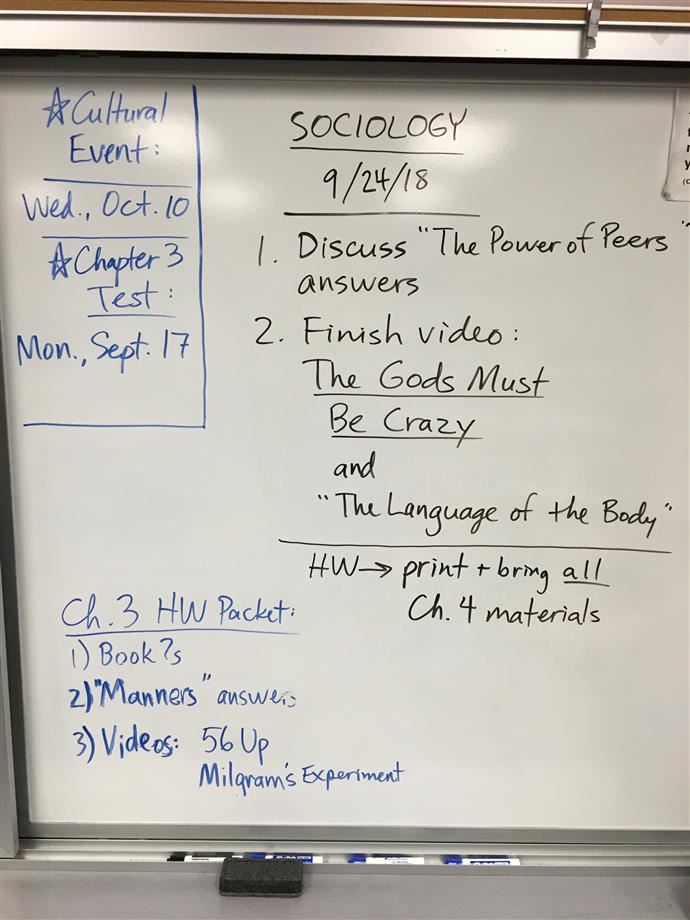 ☆Cultural
Event:
Wed., Oct. 10
☆Chapter 3
Test:
Mon., Sept. 17
SOCIOLOGY
9/24/18
1. Discuss "The Power of Peers"
answers
2. Finish video:
The Gods Must
Be Crazy
and
"The Language of the Body"
HW→ print + bring all
Ch. 4 materials
Ch. 3 HW Packet:
1) Book ?s
2) "Manners" answers
3) Videos: 56 Up
Milgram's Experiment